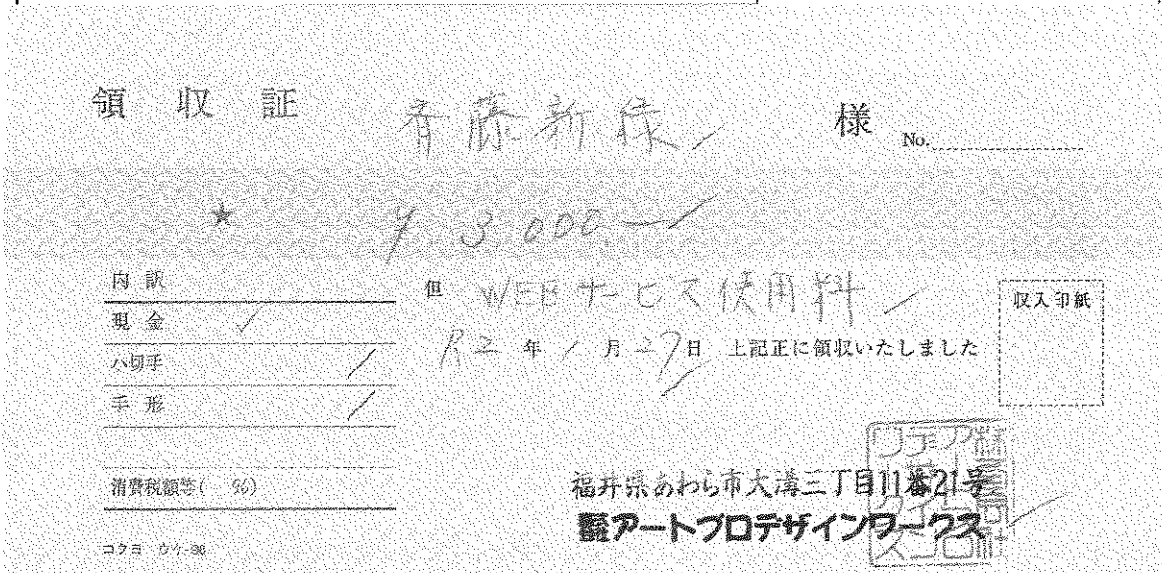 領収証 斉藤新様 様 No.
★ ¥3,000.-
内訳
現金 ✓
小切手
手形
消費税額等( %)
コクヨ ウケ-98
但 WEBサービス使用料
R2年1月27日 上記正に領収いたしました
収入印紙
福井県あわら市大溝三丁目11番21号
株式会社アートプロデザインワークス
株式会社
アートプロ
デザイン
ワークス